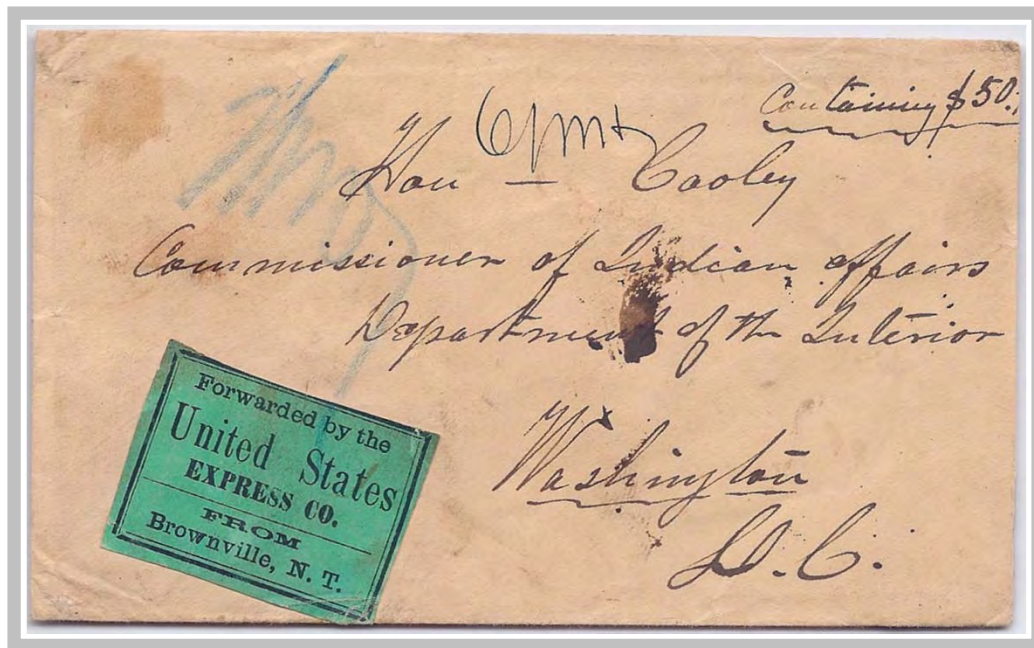 Containing $50.
Hon — Cooley
Commissioner of Indian affairs
Department of the Interior
Washington
D. C.
Forwarded by the
United States
EXPRESS CO.
FROM
Brownville, N. T.